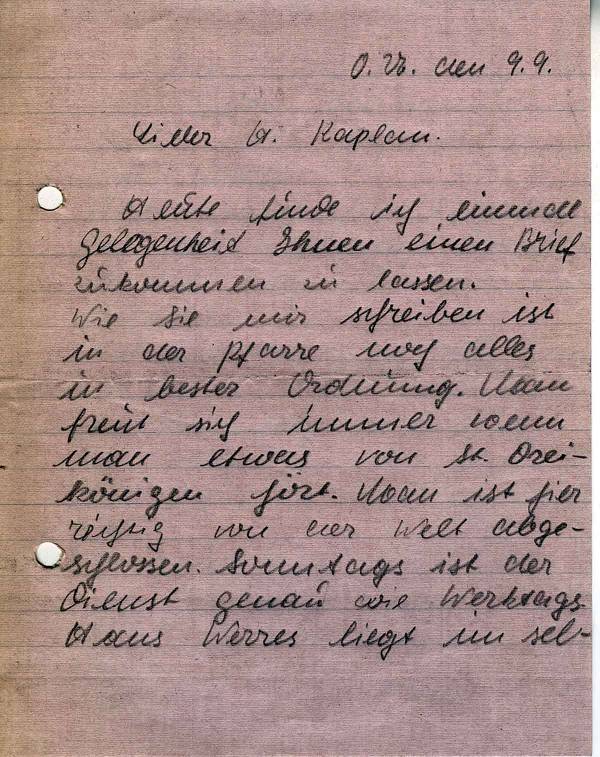 O. U. den 9.9.
Lieber H. Kaplan.
Heute finde ich einmal
Gelegenheit Ihnen einen Brief
zukommen zu lassen.
Wie Sie mir schreiben ist
in der Pfarre noch alles
in bester Ordnung. Man
freut sich immer wenn
man etwas von St. Drei-
königen hört. Man ist hier
richtig von der Welt abge-
schlossen. Sonntags ist der
Dienst genau wie Werktags.
Hans Werres liegt im sel-